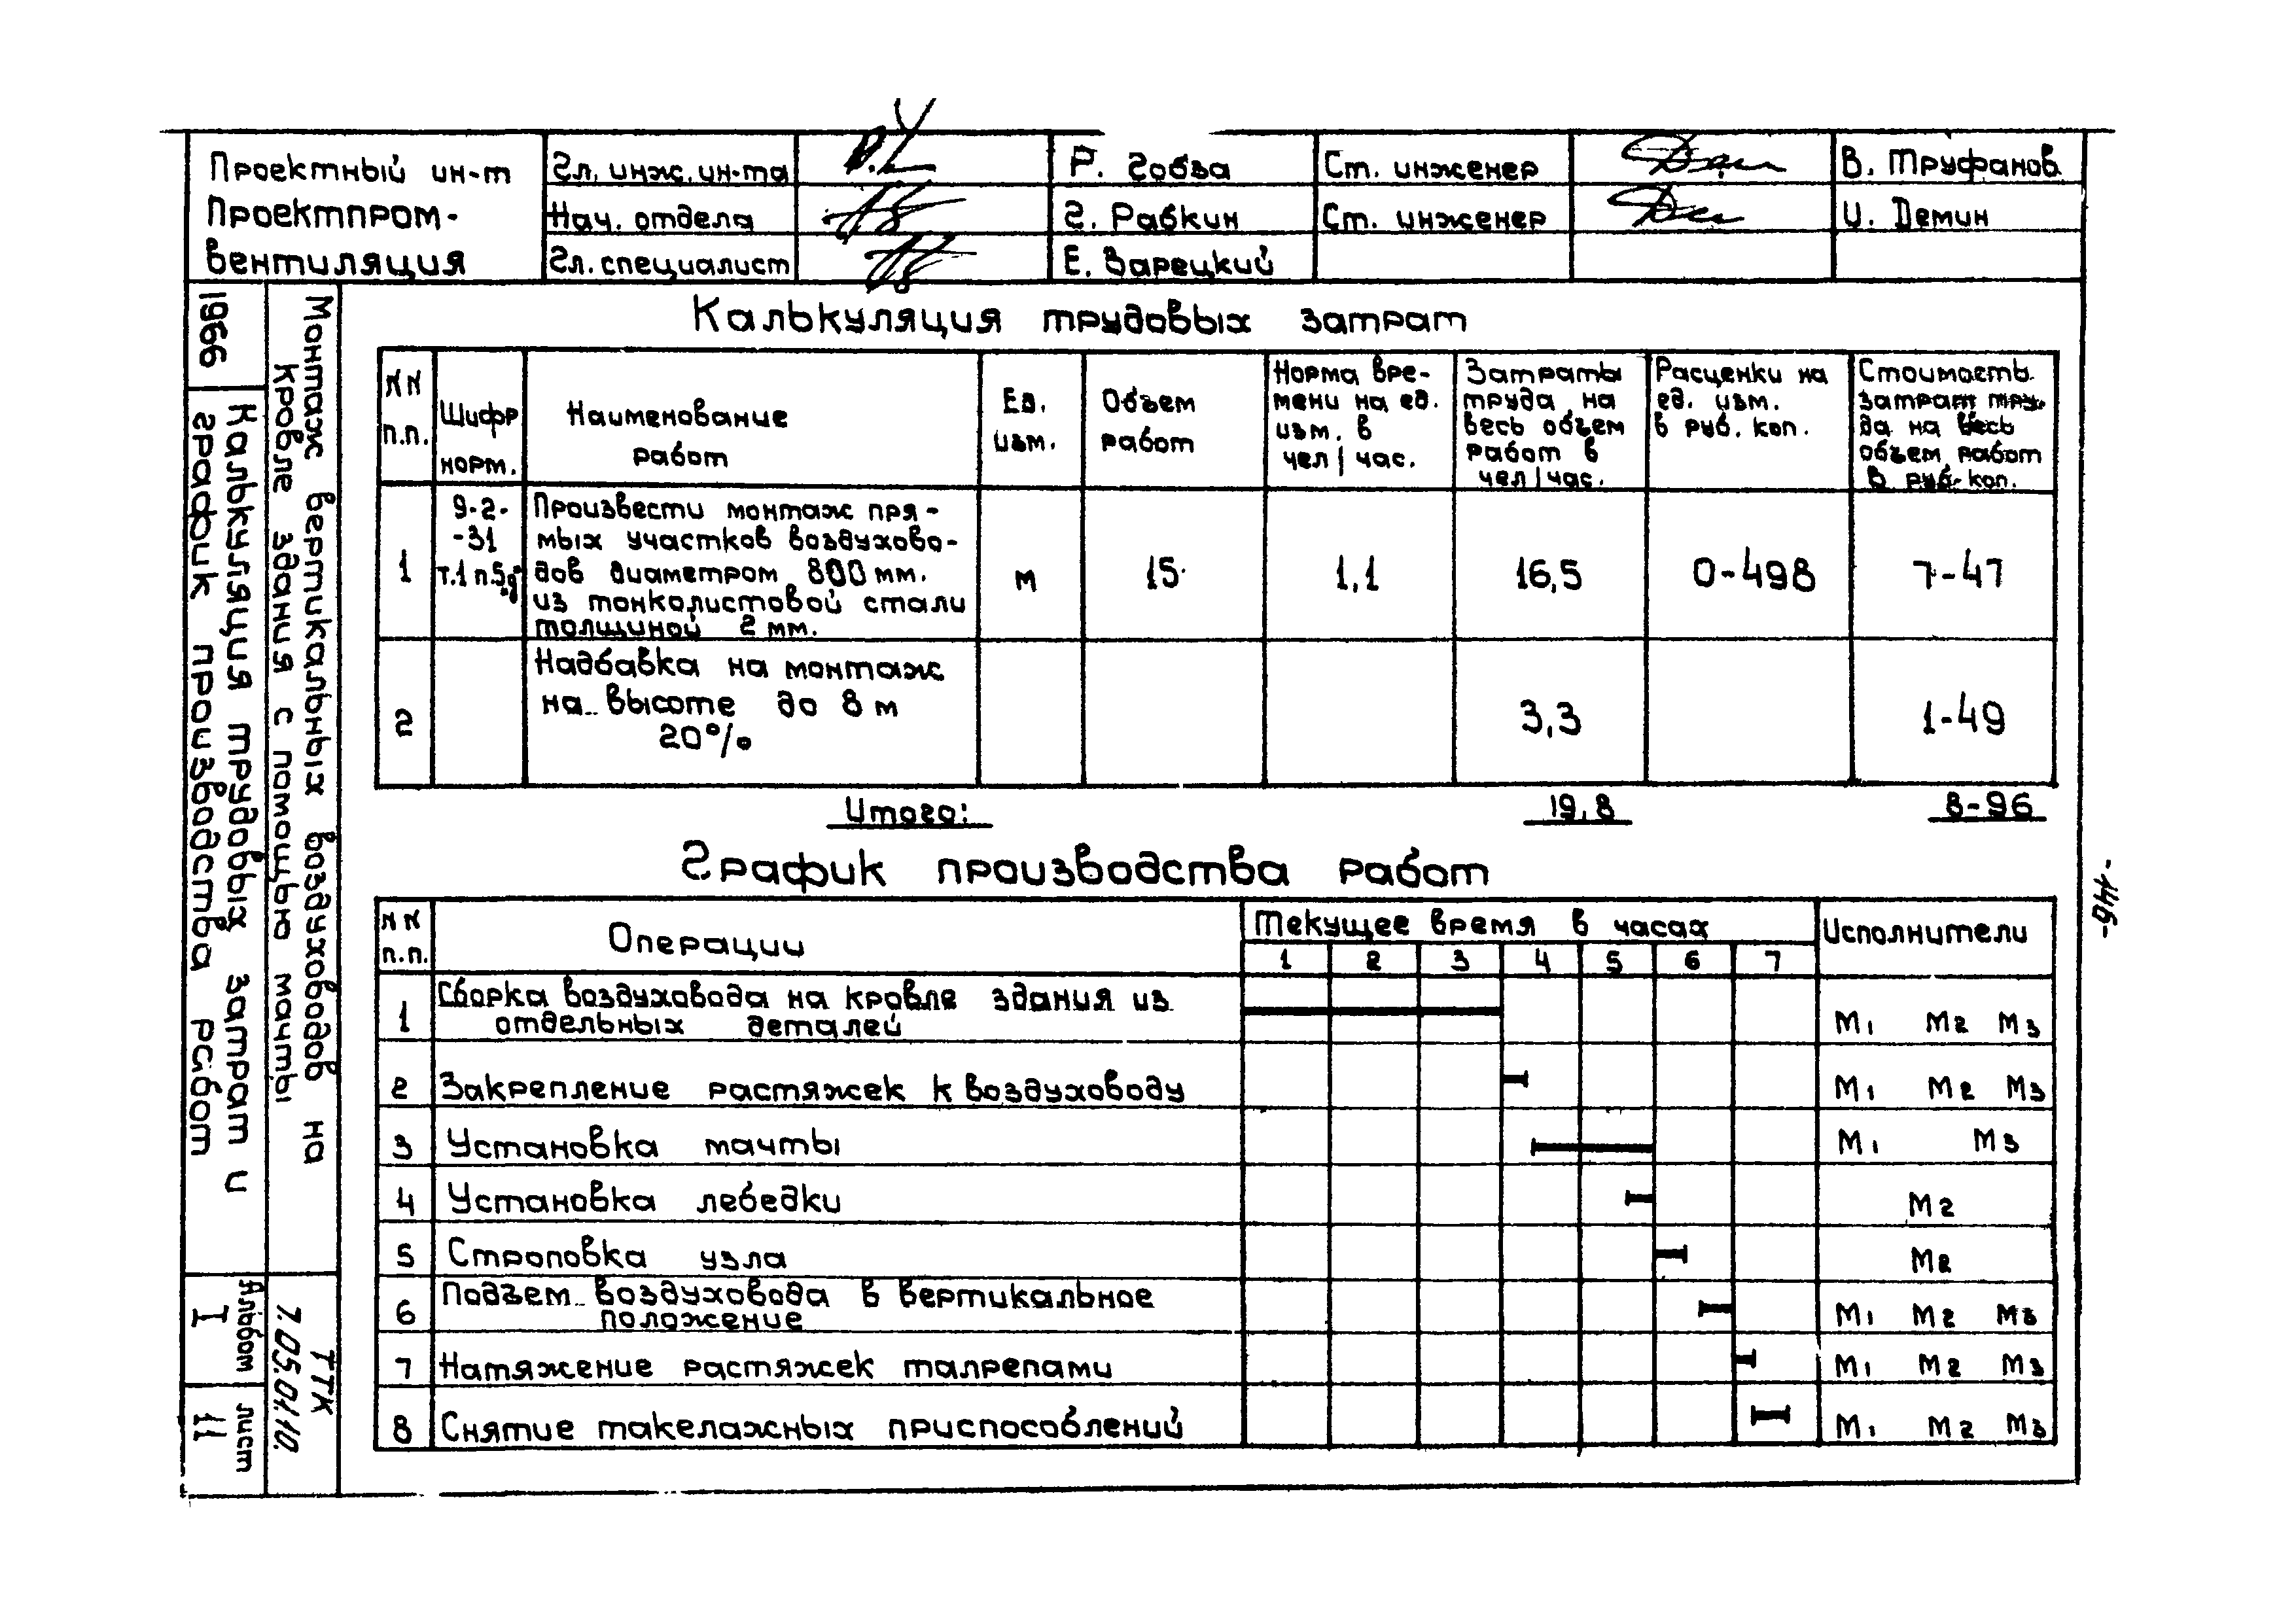 Проектный ин-т
Проектпром-
вентиляция
Гл. инж. ин-та
Р. Гобза
Ст. инженер
В. Труфанов
Нач. отдела
Г. Рабкин
Ст. инженер
И. Демин
Гл. специалист
Е. Зарецкий
1966
Калькуляция трудовых затрат и
график производства работ
Монтаж вертикальных воздуховодов на
кровле здания с помощью мачты
Альбом
I
лист
11
ТТК
7.05.01.10.
Калькуляция трудовых затрат
NN
п.п.
Шифр
норм.
Наименование
работ
Ед.
изм.
Объем
работ
Норма вре-
мени на ед.
изм. в
чел | час.
Затраты
труда на
весь объем
работ в
чел | час.
Расценки на
ед. изм.
в руб. коп.
Стоимость
затрат тру-
да на весь
объем работ
в руб-коп.
1
9-2-
-31
т.1 п.5д
Произвести монтаж пря-
мых участков воздухово-
дов диаметром 800 мм.
из тонколистовой стали
толщиной 2 мм.
м
15
1,1
16,5
0-498
7-47
2
Надбавка на монтаж
на высоте до 8 м
20%
3,3
1-49
Итого:
19,8
8-96
График производства работ
NN
п.п.
Операции
Текущее время в часах
1 2 3 4 5 6 7
Исполнители
1
Сборка воздуховода на кровле здания из
отдельных деталей
М1 М2 М3
2 Закрепление растяжек к воздуховоду М1 М2 М3
3 Установка мачты М1 М3
4 Установка лебедки М2
5 Строповка узла М2
6
Подъем воздуховода в вертикальное
положение
М1 М2 М3
7 Натяжение растяжек талрепами М1 М2 М3
8 Снятие такелажных приспособлений М1 М2 М3
-146-